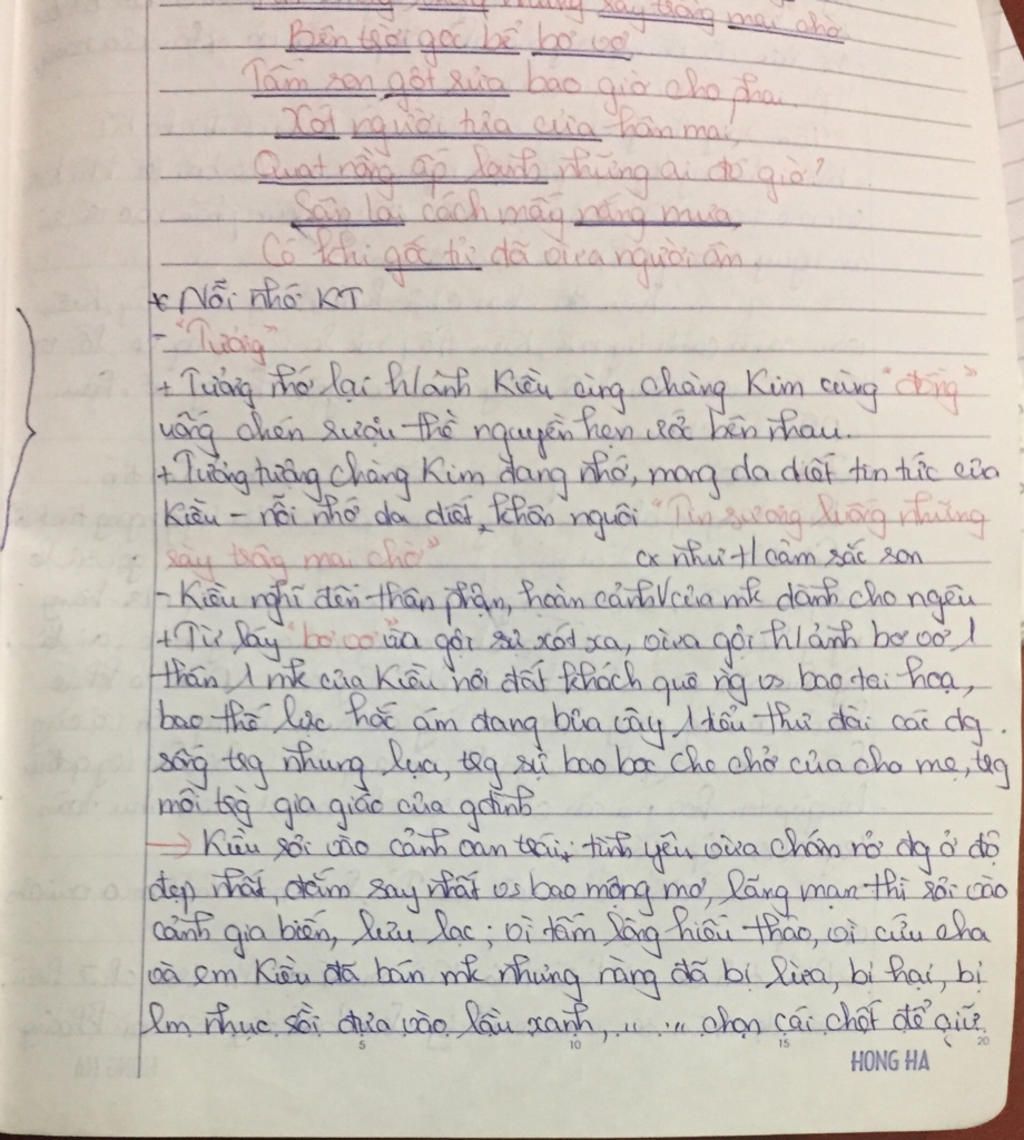 Tin sương luống những rày trông mai chờ
Bên trời góc bể bơ vơ
Tấm son gột rửa bao giờ cho phai.
Xót người tựa cửa hôm mai,
Quạt nồng ấp lạnh những ai đó giờ?
Sân lai cách mấy nắng mưa,
Có khi gốc tử đã vừa người ôm
* Nỗi nhớ KT
- "Tưởng"
+ Tưởng nhớ lại h/ảnh Kiều cùng chàng Kim cùng "đồng"
uống chén rượu thề nguyền hẹn ước bên nhau.
+ Tưởng tượng chàng Kim đang nhớ, mong da diết tin tức của
Kiều - nỗi nhớ da diết, khôn nguôi "Tin sương luống những
rày trông mai chờ"
cx như t/cảm sắc son
- Kiều nghĩ đến thân phận, hoàn cảnh √ của mk dành cho ngêu
+ Từ láy "bơ vơ" vừa gợi sự xót xa, vừa gợi h/ảnh bơ vơ, 1
thân 1 mk của Kiều nơi đất khách quê ng vs bao tai hoạ,
bao thế lực hắc ám đang bủa vây 1 tiểu thư đài các đg
sống trg nhung lụa, trg sự bao bọc che chở của cha mẹ, trg
môi trg gia giáo của gđình
→ Kiều rơi vào cảnh oan trái, tình yêu vừa chớm nở đg ở độ
đẹp nhất, đắm say nhất vs bao mộng mơ, lãng mạn thì rơi vào
cảnh gia biến, lưu lạc; vì tấm lòng hiếu thảo, vì cứu cha
và em Kiều đã bán mk nhưng nàng đã bị lừa, bị hại, bị
lm nhục rồi đưa vào lầu xanh, ,.. .. chọn cái chết để giữ
5 10 15 20
HONG HA